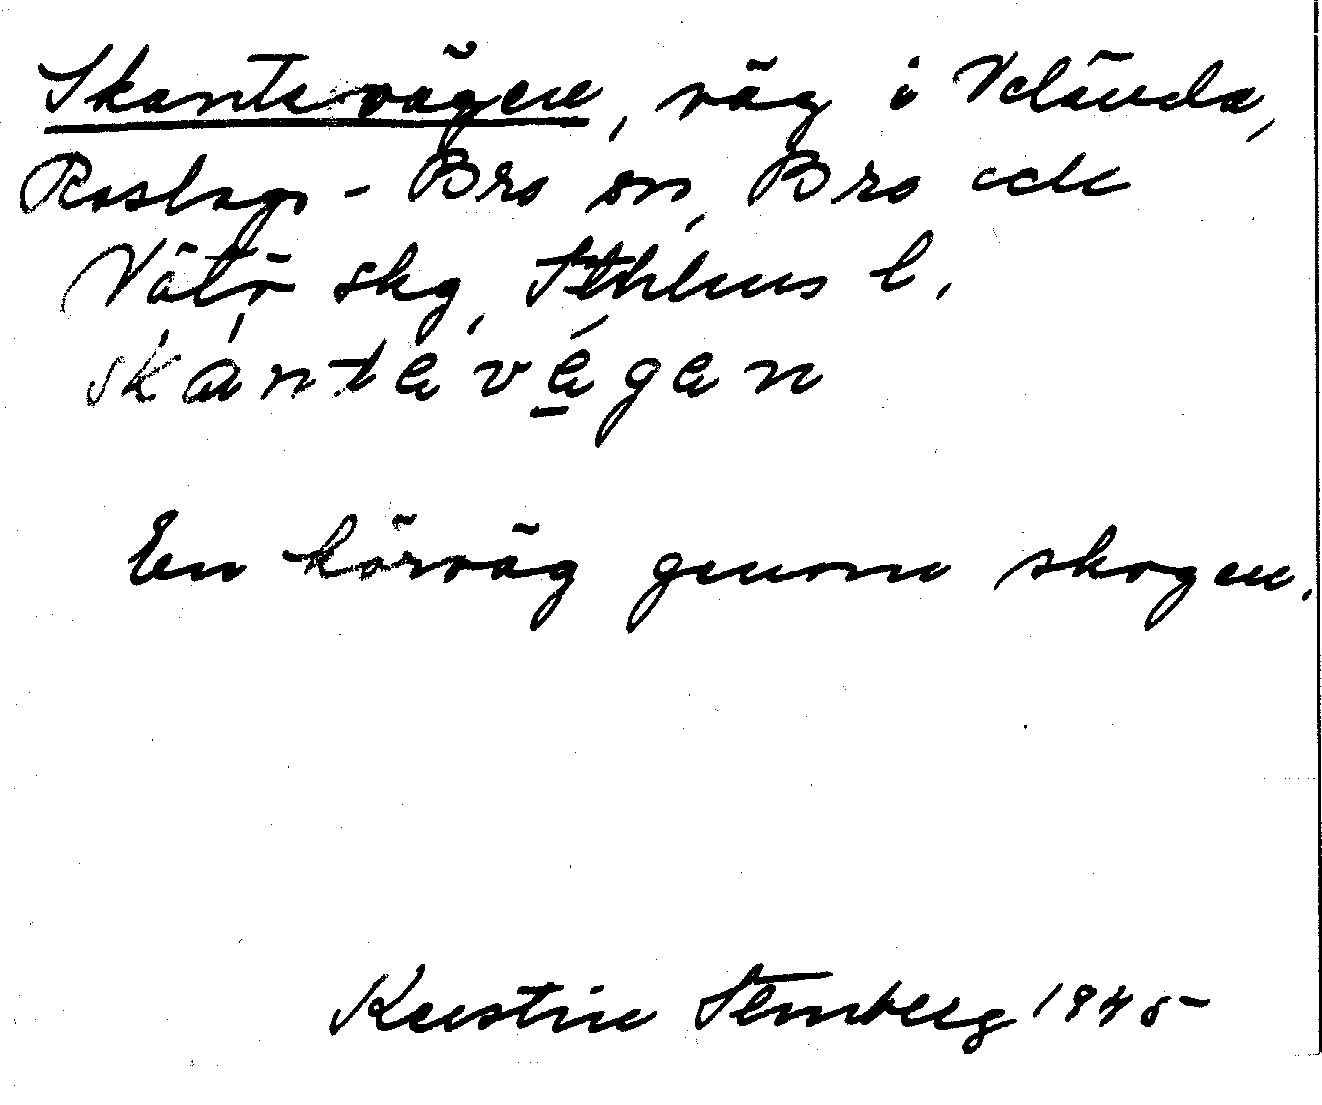 Skantevägen, väg i Velända,
Roslags-Bro sn, Bro och
Vätö skg, Sthlms l.
skántevę̀gen
En körväg genom skogen.
Kerstin Stenberg 1945